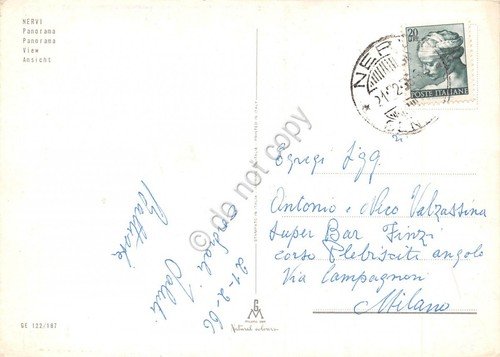 NERVI
Panorama
Panorama
View
Ansicht
NERVI
21-2-
20
POSTE ITALIANE
Egregi Sigg.
Antonio e Nico Valzassina
Super Bar Finzi
corso Plebisciti angolo
Via Compagnoni
Milano
21-2-66
Cordiali Saluti
do not copy
GM
GE 122/187